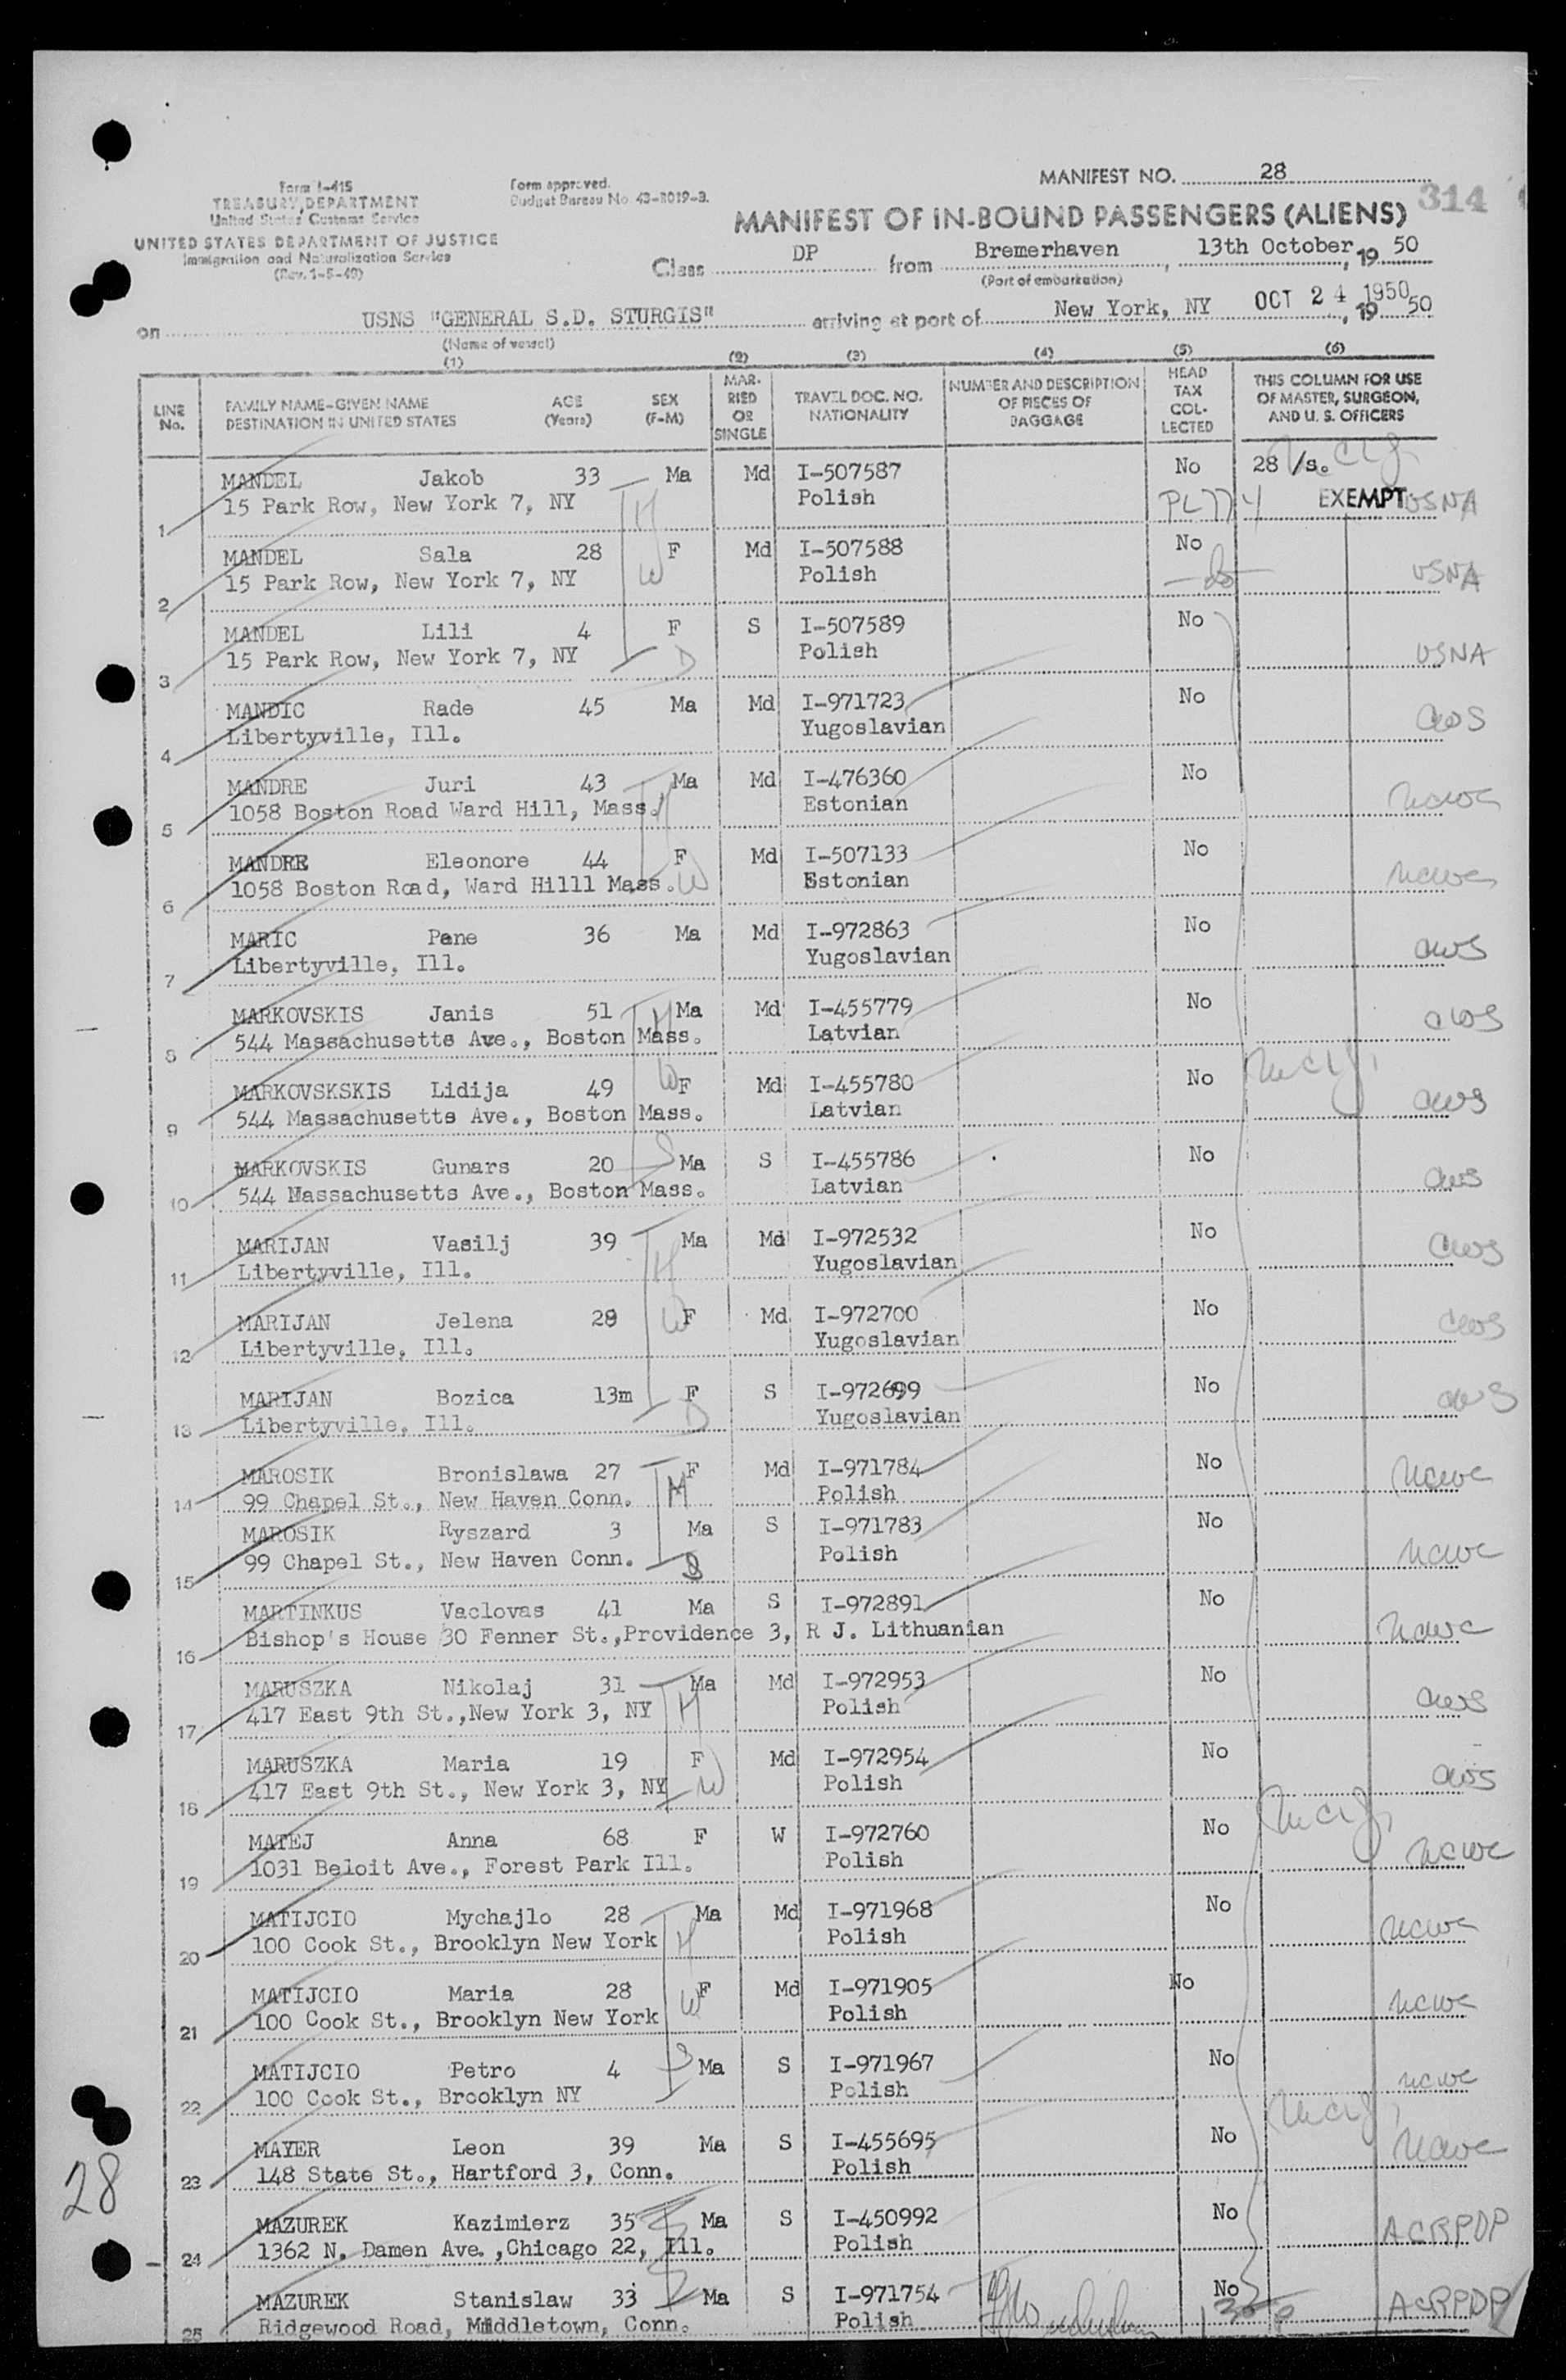 MANIFEST NO. 28
314
Form I-415
TREASURY DEPARTMENT
United States Customs Service
UNITED STATES DEPARTMENT OF JUSTICE
Immigration and Naturalization Service
(Rev. 1-5-49)
Form approved.
Budget Bureau No. 43-R019-3.
MANIFEST OF IN-BOUND PASSENGERS (ALIENS)
Class DP from Bremerhaven, 13th October, 19 50
(Port of embarkation)
on USNS "GENERAL S.D. STURGIS" arriving at port of New York, NY OCT 24 1950, 19 50
(Name of vessel)
(1) (2) (3) (4) (5) (6)
LINE No. FAMILY NAME-GIVEN NAME DESTINATION IN UNITED STATES AGE (Years) SEX (F-M) MARRIED OR SINGLE TRAVEL DOC. NO. NATIONALITY NUMBER AND DESCRIPTION OF PIECES OF BAGGAGE HEAD TAX COLLECTED THIS COLUMN FOR USE OF MASTER, SURGEON, AND U. S. OFFICERS
MANDEL Jakob 33 Ma Md I-507587 No 28 /s.
1 15 Park Row, New York 7, NY H Polish PL774 EXEMPT USNA
MANDEL Sala 28 F Md I-507588 No
2 15 Park Row, New York 7, NY W Polish -do- USNA
MANDEL Lili 4 F S I-507589 No
3 15 Park Row, New York 7, NY D Polish USNA
MANDIC Rade 45 Ma Md I-971723 No
4 Libertyville, Ill. Yugoslavian CWS
MANDRE Juri 43 Ma Md I-476360 No
5 1058 Boston Road Ward Hill, Mass. H Estonian NCWC
MANDRE Eleonore 44 F Md I-507133 No
6 1058 Boston Road, Ward Hilll Mass. W Estonian NCWC
MARIC Pane 36 Ma Md I-972863 No
7 Libertyville, Ill. Yugoslavian CWS
MARKOVSKIS Janis 51 H Ma Md I-455779 No
8 544 Massachusetts Ave., Boston Mass. Latvian CWS
MARKOVSKSKIS Lidija 49 W F Md I-455780 No
9 544 Massachusetts Ave., Boston Mass. Latvian CWS
MARKOVSKIS Gunars 20 S Ma S I-455786 No
10 544 Massachusetts Ave., Boston Mass. Latvian CWS
MARIJAN Vasilj 39 Ma Md I-972532 No
11 Libertyville, Ill. H Yugoslavian CWS
MARIJAN Jelena 28 W F Md I-972700 No
12 Libertyville, Ill. Yugoslavian CWS
MARIJAN Bozica 13m F S I-972699 No
13 Libertyville, Ill. D Yugoslavian CWS
MAROSIK Bronislawa 27 F Md I-971784 No
14 99 Chapel St., New Haven Conn. M Polish NCWC
MAROSIK Ryszard 3 Ma S I-971783 No
15 99 Chapel St., New Haven Conn. S Polish NCWC
MARTINKUS Vaclovas 41 Ma S I-972891 No
16 Bishop's House 30 Fenner St.,Providence 3, R J. Lithuanian NCWC
MARUSZKA Nikolaj 31 Ma Md I-972953 No
17 417 East 9th St.,New York 3, NY H Polish CWS
MARUSZKA Maria 19 F Md I-972954 No
18 417 East 9th St., New York 3, NY W Polish CWS
MATEJ Anna 68 F W I-972760 No
19 1031 Beloit Ave., Forest Park Ill. Polish NCWC
MATIJCIO Mychajlo 28 Ma Md I-971968 No
20 100 Cook St., Brooklyn New York H Polish NCWC
MATIJCIO Maria 28 F Md I-971905 No
21 100 Cook St., Brooklyn New York W Polish NCWC
MATIJCIO Petro 4 S Ma S I-971967 No
22 100 Cook St., Brooklyn NY Polish NCWC
MAYER Leon 39 Ma S I-455695 No
23 148 State St., Hartford 3, Conn. Polish NCWC
28
MAZUREK Kazimierz 35 Ma S I-450992 No
24 1362 N. Damen Ave.,Chicago 22, Ill. Polish ACRPDP
MAZUREK Stanislaw 33 Ma S I-971754 No
25 Ridgewood Road, Mddletown, Conn. Polish ACRPDP